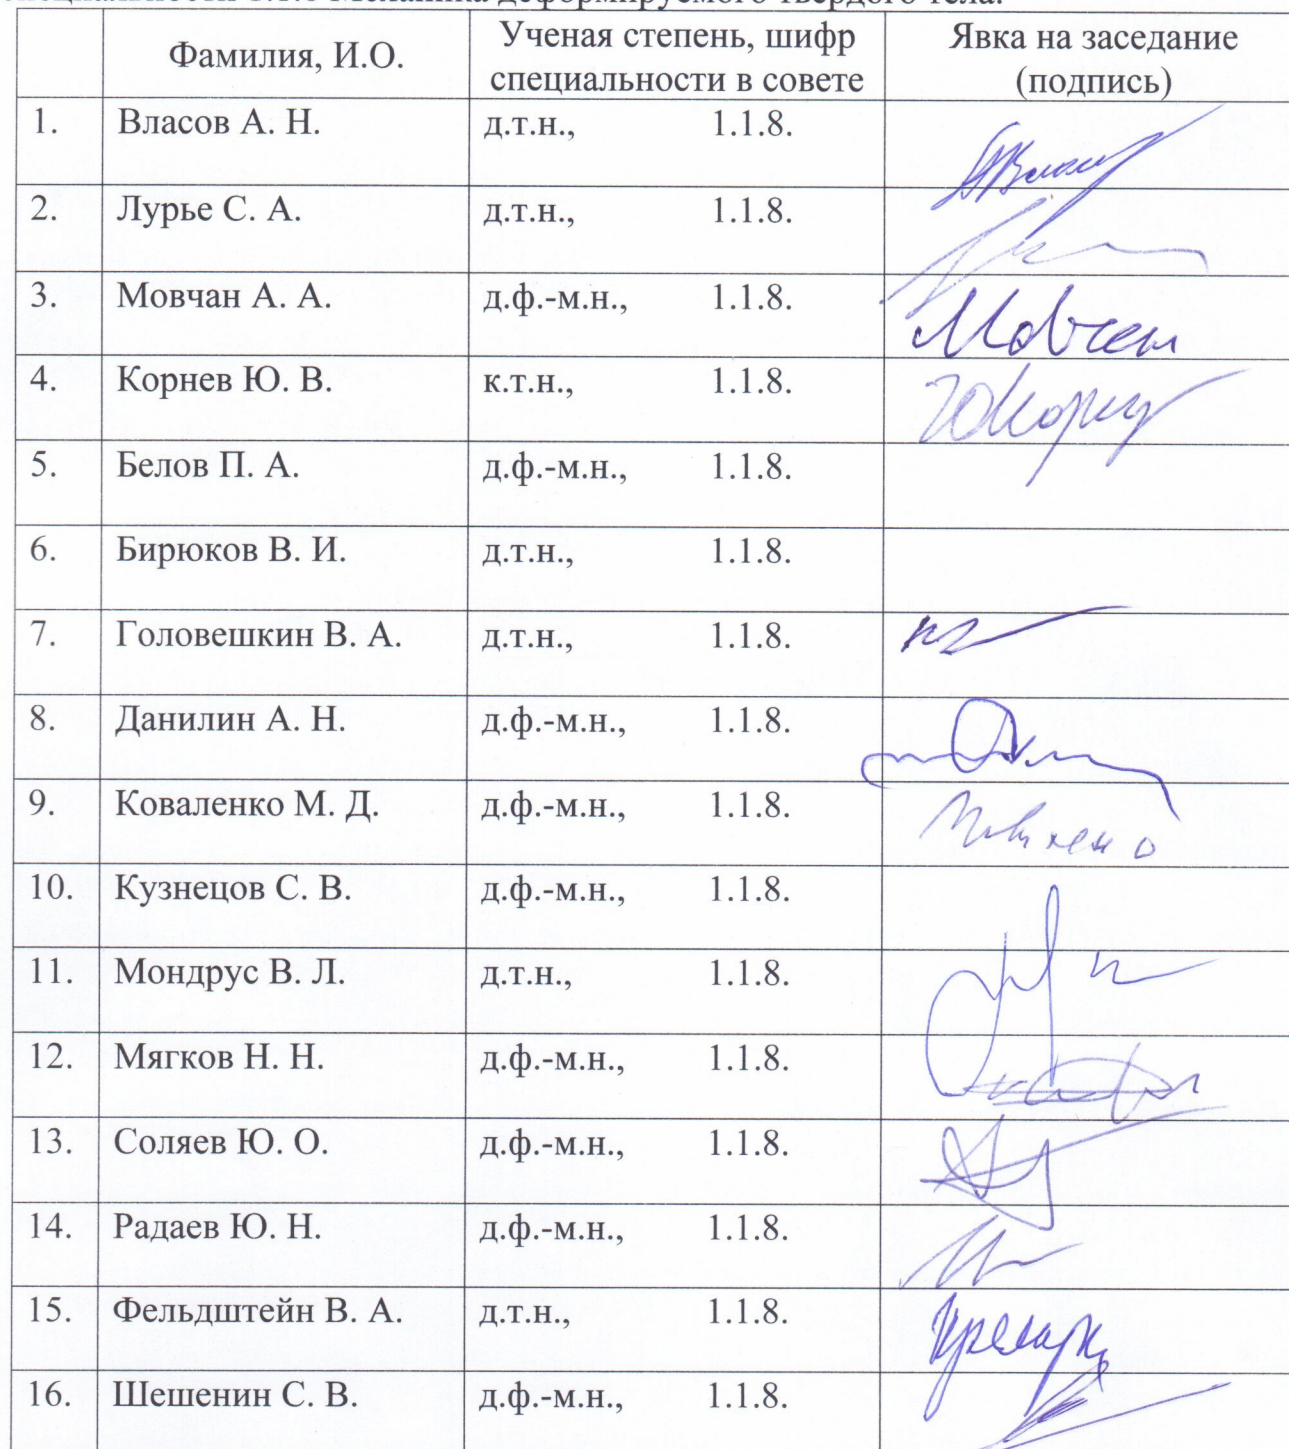 Механика деформируемого твердого тела.
Фамилия, И.О. Ученая степень, шифр специальности в совете Явка на заседание (подпись)
1. Власов А. Н. д.т.н., 1.1.8.
2. Лурье С. А. д.т.н., 1.1.8.
3. Мовчан А. А. д.ф.-м.н., 1.1.8. Мовчан
4. Корнев Ю. В. к.т.н., 1.1.8.
5. Белов П. А. д.ф.-м.н., 1.1.8.
6. Бирюков В. И. д.т.н., 1.1.8.
7. Головешкин В. А. д.т.н., 1.1.8.
8. Данилин А. Н. д.ф.-м.н., 1.1.8.
9. Коваленко М. Д. д.ф.-м.н., 1.1.8.
10. Кузнецов С. В. д.ф.-м.н., 1.1.8.
11. Мондрус В. Л. д.т.н., 1.1.8.
12. Мягков Н. Н. д.ф.-м.н., 1.1.8.
13. Соляев Ю. О. д.ф.-м.н., 1.1.8.
14. Радаев Ю. Н. д.ф.-м.н., 1.1.8.
15. Фельдштейн В. А. д.т.н., 1.1.8.
16. Шешенин С. В. д.ф.-м.н., 1.1.8.